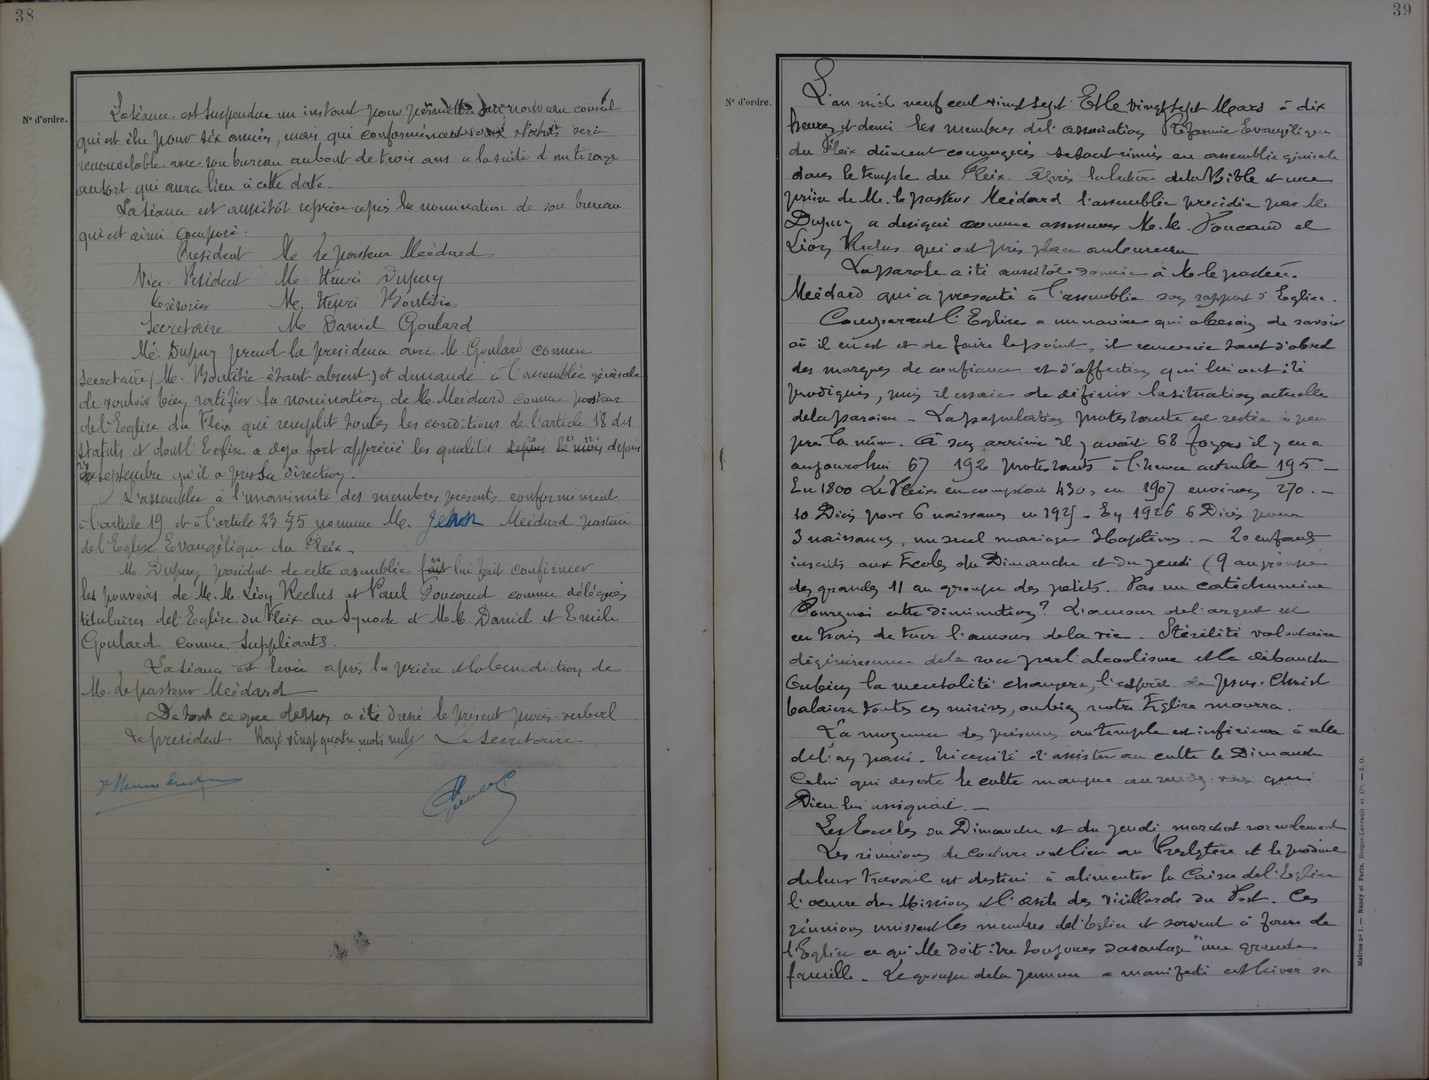 38
N° d'ordre.
La séance est suspendue un instant pour permettre au nouveau conseil
qui est élu pour six années, mais qui conformément aux statuts sera
renouvelable avec son bureau au bout de trois ans à la suite d'un tirage
au sort qui aura lieu à cette date.
La séance est aussitôt reprise après la nomination de son bureau
qui est ainsi composé :
Président M. le pasteur Méédard
Vice-Président M. Henri Dupuy
Trésorier M. Henri Boutitie
Secrétaire M. Daniel Goulard
M. Dupuy prend la présidence avec M. Goulard comme
secrétaire (M. Boutitie étant absent) et demande à l'assemblée générale
de vouloir bien ratifier la nomination de M. Méédard comme pasteur
de l'Eglise du Fleix qui remplit toutes les conditions de l'article 18 des
statuts et dont l'Eglise a déjà fort apprécié les qualités depuis
septembre qu'il a pris sa direction.
L'assemblée à l'unanimité des membres présents conformément
à l'article 19 et à l'article 23 § 5 nomme M. Jean Méédard pasteur
de l'Eglise Evangélique du Fleix.
M. Dupuy président de cette assemblée fait lui fait confirmer
les pouvoirs de M. M. Léon Reclus et Paul Poucaud comme délégués
titulaires de l'Eglise du Fleix au Synode et M. M. Daniel et Emile
Goulard comme suppliants.
La séance est levée après la prière et la bénédiction de
M. le pasteur Méédard
De tout ce que dessus a été dressé le présent procès-verbal
Le président Rayé vingt quatre mots nuls Le Secrétaire
39
N° d'ordre.
L'an mil neuf cent vingt sept Et le vingt sept Mars à dix
heures et demi les membres de l'association Réformée Evangélique
du Fleix dûment convoqués se sont réunis en assemblée générale
dans le temple du Fleix. Après la lecture de la Bible et une
prière de M. le pasteur Méédard l'assemblée présidée par M.
Dupuy a désigné comme assesseurs M. M. Poucaud et
Léon Reclus qui ont pris place au bureau
La parole a été aussitôt donnée à M. le pasteur
Méédard qui a présenté à l'assemblée son rapport d'Eglise.
Comparant l'Eglise à un navire qui a besoin de savoir
où il en est et de faire le point, il remercie tout d'abord
des marques de confiance et d'affection qui lui ont été
prodigués, puis il essaie de définir la situation actuelle
de la paroisse - La population protestante est restée à peu
près la même. A son arrivée il y avait 68 foyers il y en a
aujourd'hui 67 192 protestants à l'heure actuelle 195 -
En 1800 Le Fleix en comptait 430, en 1907 environ 270. -
10 Décès pour 6 naissances en 1925 - En 1926 6 Décès pour
3 naissances, un seul mariage 3 baptêmes. - 20 enfants
inscrits aux Ecoles du Dimanche et du Jeudi (9 au groupe
des grands 11 au groupe des petits. Pas un catéchumène
Pourquoi cette diminution? L'amour de l'argent est
en train de tuer l'amour de la vie. Stérilité volontaire
dégénérescence de la race par l'alcoolisme et la débauche
Ou bien la mentalité changera, l'esprit de Jésus-Christ
balaiera toutes ces misères, ou bien notre Eglise mourra.
La moyenne des présences au temple est inférieure à celle
de l'an passé. Nécessité d'assister au culte le Dimanche
Celui qui déserte le culte manque au rendez-vous que
Dieu lui assignait. -
Les Ecoles du Dimanche et du jeudi marchent normalement
Les réunions de couture ont lieu au Presbytère et le produit
de leur travail est destiné à alimenter la Caisse de l'Eglise
l'oeuvre des Missions et l'asile des vieillards du Port. Ces
réunions unissent les membres de l'Eglise et servent à faire de
l'Eglise ce qu'elle doit être toujours davantage "une grande
famille. Le groupe de la Jeunesse a manifesté cet hiver sa
Mairies n° 1. — Nancy et Paris, Berger-Levrault et Cie. — 5. O.